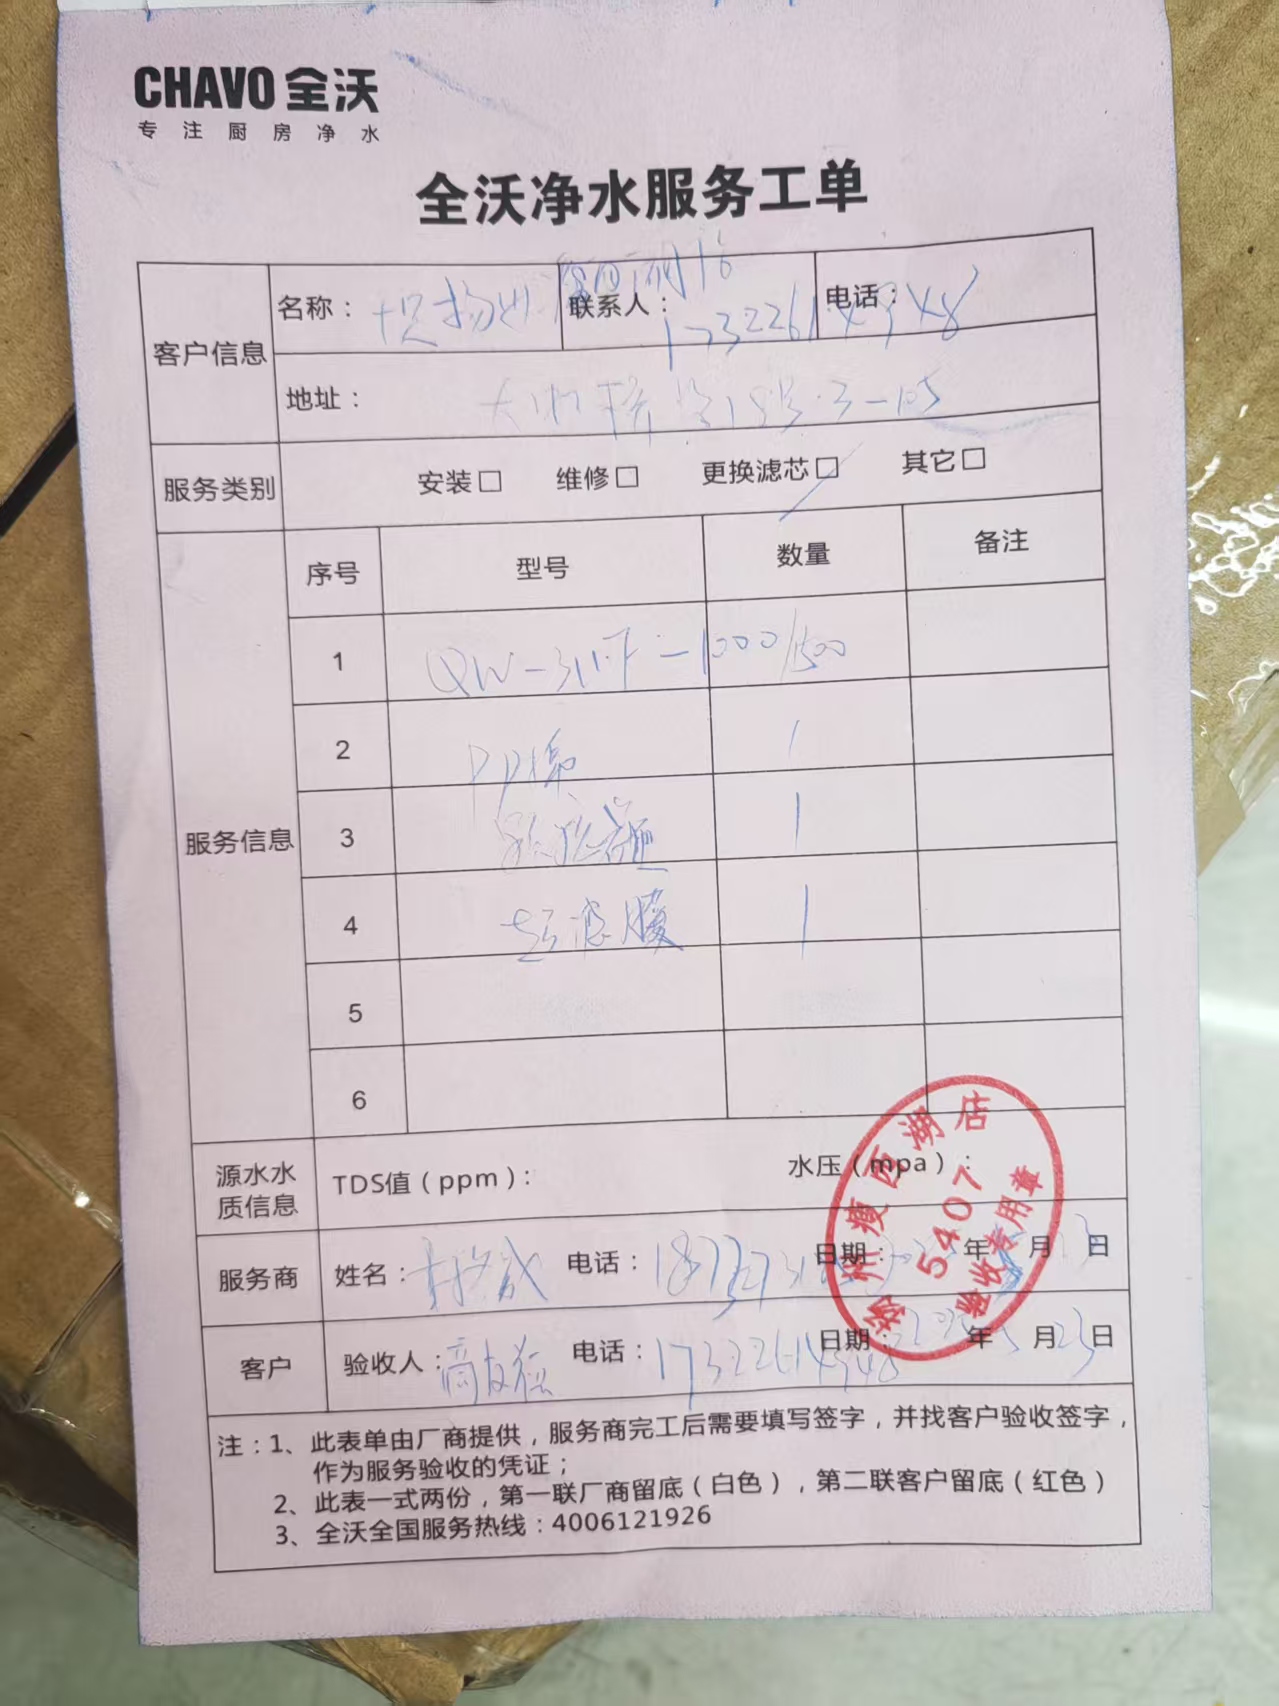 CHAVO 全沃
专注厨房净水
全沃净水服务工单
客户信息
名称：
联系人：
电话：
17322614948
地址：
号3-105
服务类别 安装□ 维修□ 更换滤芯□ 其它□
服务信息
序号 型号 数量 备注
1 -1000/1500
2 PP棉 1
3 1
4 超滤膜 1
5
6
源水水质信息 TDS值（ppm）： 水压（mpa）：
服务商 姓名： 电话： 日期： 年 月 日
客户 验收人： 电话：17322614948 日期： 年5月23日
瘦西湖店
5407
验收专用章
注：1、此表单由厂商提供，服务商完工后需要填写签字，并找客户验收签字，
作为服务验收的凭证；
2、此表一式两份，第一联厂商留底（白色），第二联客户留底（红色）
3、全沃全国服务热线：4006121926